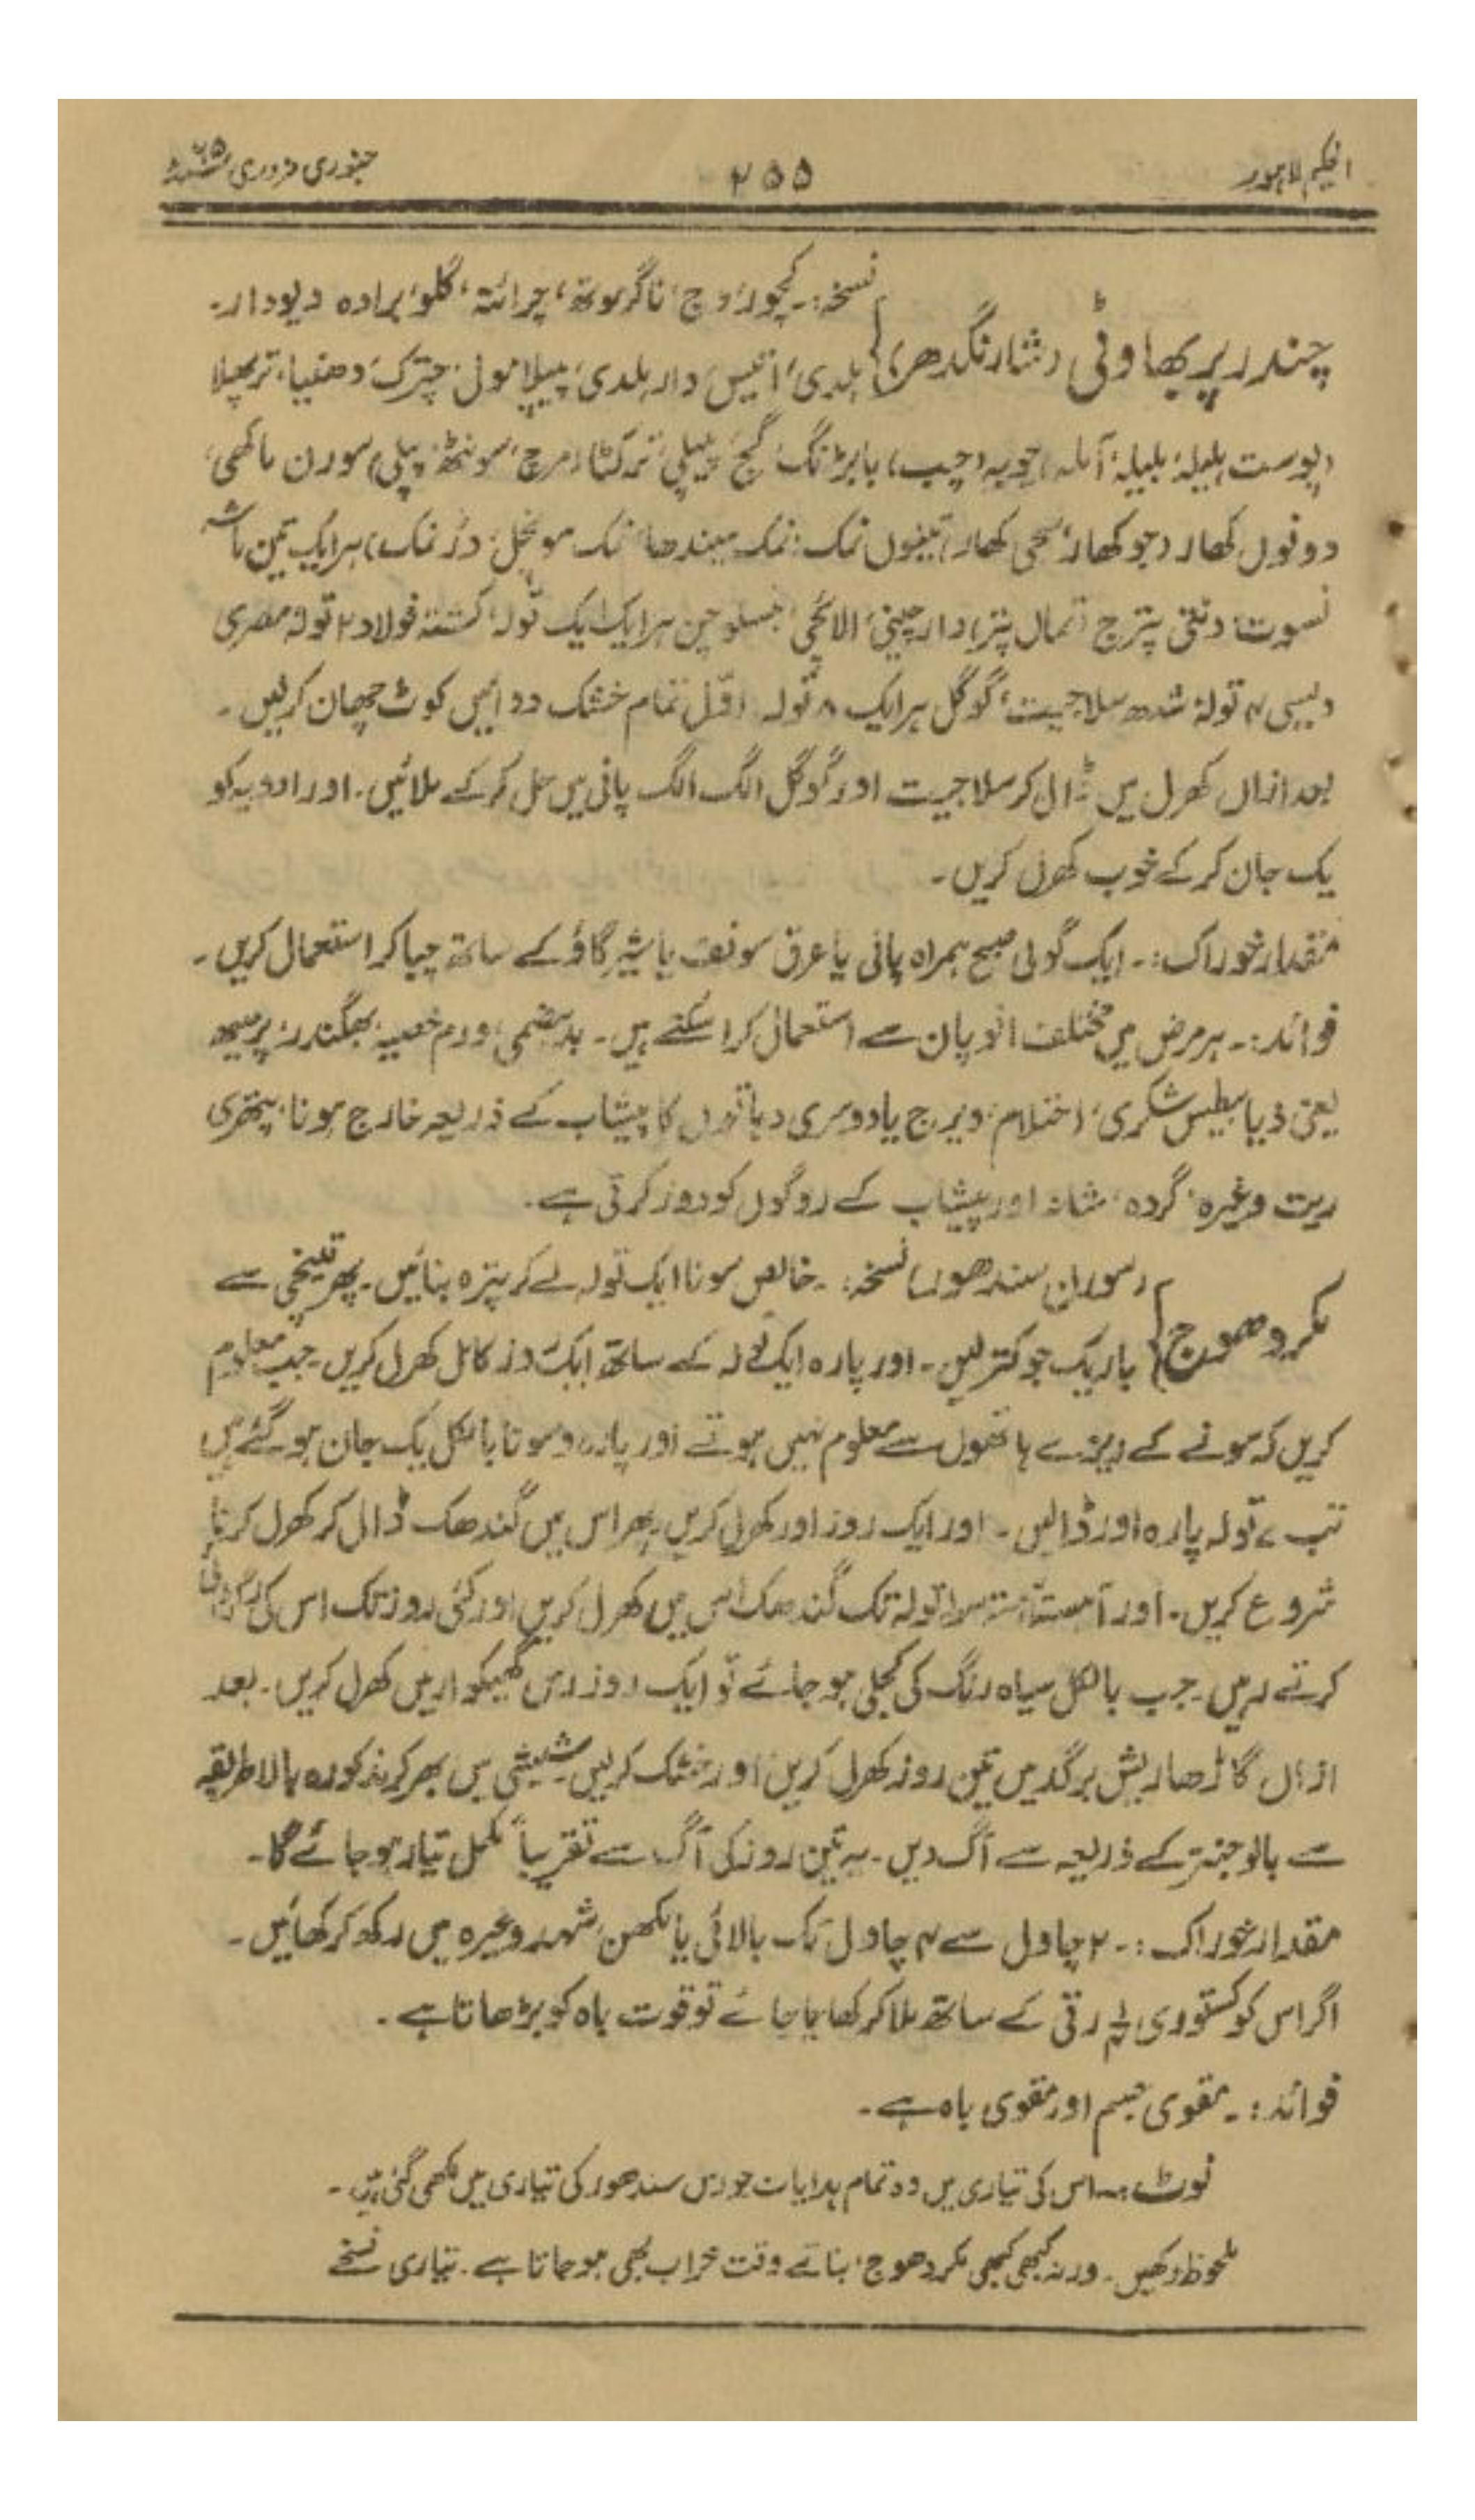 الحکیم لاہور ۲۵۵ جنوری فروری ۶۵ء
نسخہ:۔ کچور، وچ، ناگرموتھ، چرائتہ، گلو، برادہ دیودار۔
چندر پربھاوٹی (شارنگدھر) ہلدی، اتیس، دارہلدی، پیپلامول، چترک، دھنیا، ترپھلا
(پوست ہلیلہ، بلیلہ، آملہ) چویہ (چب)، بابڑنگ، گج پیپلی، ترکٹا (مرچ، سونٹھ، پپلی) سورن ماکھی،
دونوں کھار (جوکھار، سجی کھار) تینوں نمک: نمک سیندھا، نمک سونچل، وڑنمک) ہر ایک تین ماشہ
نسوت، دنتی پترج (تمال پتر) دارچینی، الائچی، بنسلوچن ہر ایک ایک تولہ، کشتہ فولاد ۲ تولہ مصری
دیسی ۴ تولہ، شدھ سلاجیت، گوگل ہر ایک ۸ تولہ۔ اوّل تمام خشک دوائیں کوٹ چھان کر لیں۔
بعد ازاں کھرل میں ڈال کر سلاجیت اور گوگل الگ الگ پانی میں حل کر کے ملائیں۔ اور ادویہ کو
یک جان کر کے خوب کھرل کریں۔
مقدار خوراک:۔ ایک گولی صبح ہمراہ پانی یا عرق سونف یا شیر گاؤ کے ساتھ چبا کر استعمال کریں۔
فوائد:۔ ہر مرض میں مختلف انوپان سے استعمال کرا سکتے ہیں۔ بدہضمی، ورم خصیہ، بھگندر، پرمیہہ
یعنی ذیابیطیس شکری، احتلام، ویرج یا دوسری دہاتوں کا پیشاب کے ذریعہ خارج ہونا، پتھری
ریت وغیرہ، گردہ، مثانہ اور پیشاب کے روگوں کو دور کرتی ہے۔
(سورن سندھور) نسخہ:۔ خالص سونا ایک تولہ لے کر پترہ بنائیں۔ پھر قینچی سے
مکردھوج باریک جو کتر لیں۔ اور پارہ ایک تولہ کے ساتھ ایک روز کامل کھرل کریں۔ جب معلوم
کریں کہ سونے کے ریزے ہاتھوں سے معلوم نہیں ہوتے اور پارہ و سونا بالکل یک جان ہو گئے ہیں
تب ۷ تولہ پارہ اور ڈالیں۔ اور ایک روز اور کھرل کریں۔ پھر اس میں گندھک ڈال کر کھرل کرنا
شروع کریں۔ اور آہستہ آہستہ تولہ تک گندھک اس میں کھرل کریں اور کئی روز تک اس کی رگڑائی
کرتے رہیں۔ جب بالکل سیاہ رنگ کی کجلی ہو جائے تو ایک روز رس گھیکوار میں کھرل کریں۔ بعد
ازاں گاڑھا ریش برگد میں تین روز کھرل کریں اور خشک کر لیں۔ شیشی میں بھر کر مذکورہ بالا طریقہ
سے بالوجنتر کے ذریعہ سے آگ دیں۔ یہ تین روز کی آگ سے تقریباً مکمل تیار ہو جائے گا۔
مقدار خوراک:۔ ۲ چاول سے ۴ چاول تک بالائی یا مکھن، شہد وغیرہ میں رکھ کر کھائیں۔
اگر اس کو کستوری رتی کے ساتھ ملا کر کھایا جائے تو قوت باہ کو بڑھاتا ہے۔
فوائد:۔ مقوی جسم اور مقوی باہ ہے۔
نوٹ:۔ اس کی تیاری میں وہ تمام ہدایات جو رس سندھور کی تیاری میں لکھی گئی ہیں۔
ملحوظ رکھیں۔ ورنہ کبھی کبھی مکردھوج، بناتے وقت خراب بھی ہو جاتا ہے۔ تیاری نسخے